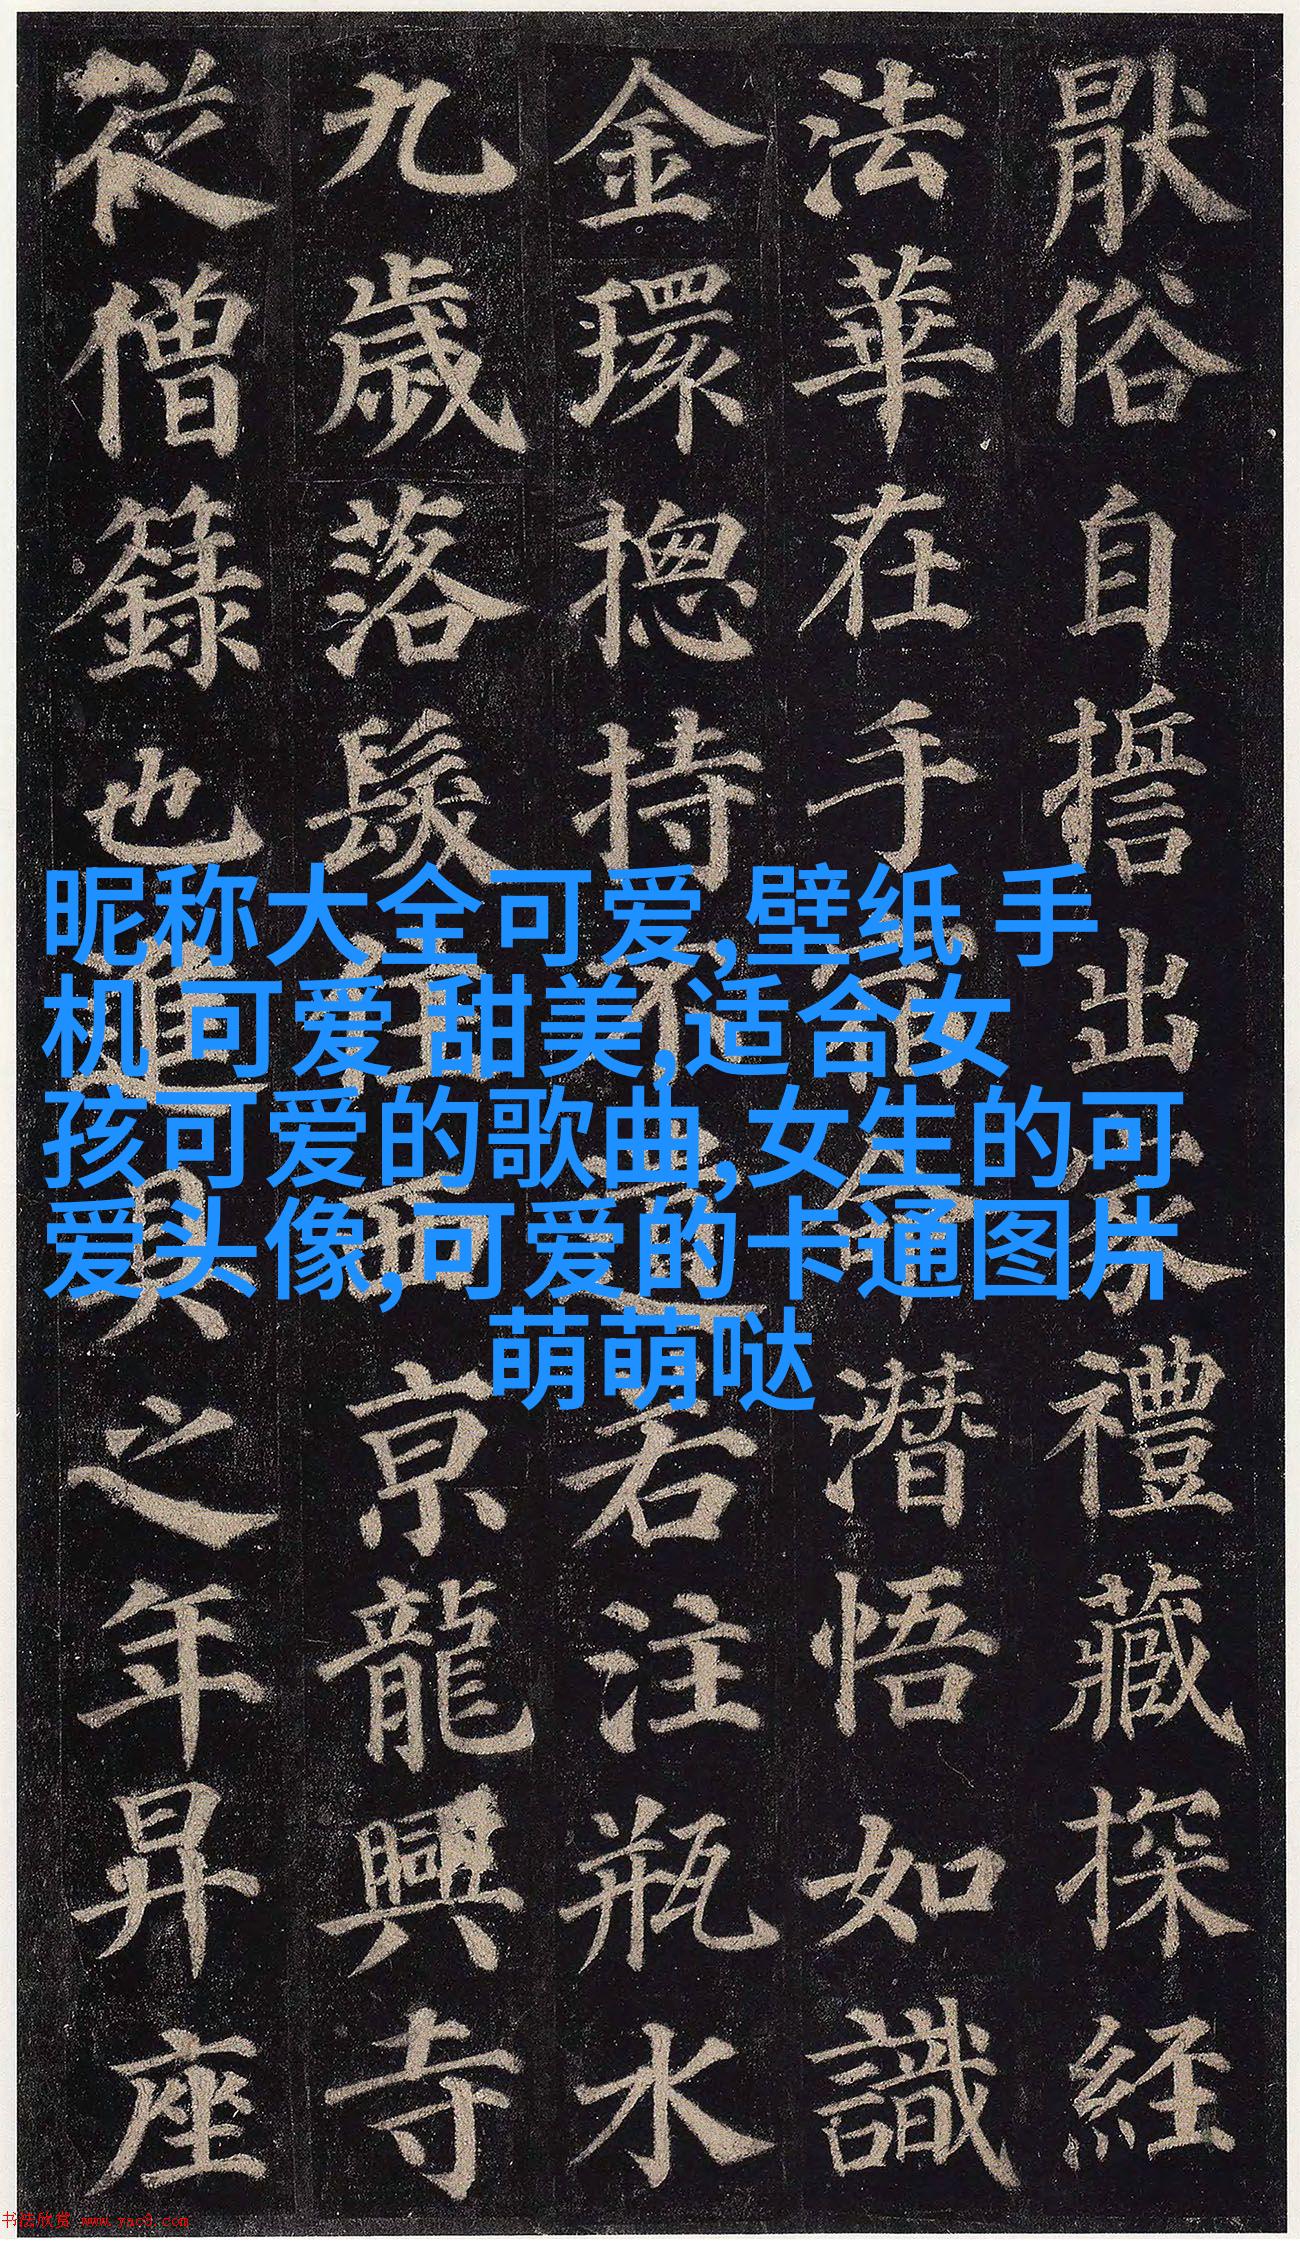 猒俗自誓出家禮藏探経
法華在手宿命潛悟如識
金環揔持不遺若注瓶水
九歲落髮住西京龍興寺
從僧籙也進具之年昇座
昵称大全可爱,壁纸 手
机 可爱 甜美,适合女
孩可爱的歌曲,女生的可
爱头像,可爱的卡通图片
萌萌哒
书法欣赏 www.yac8.com